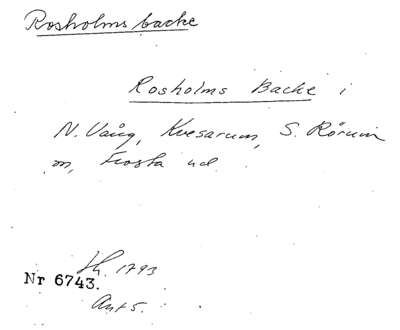 Rosholms backe
Rosholms Backe i
N. Vång, Kvesarum, S. Rörum
sn, Frosta hd.
Sk. 1793
Nr 6743.
Akt 5.